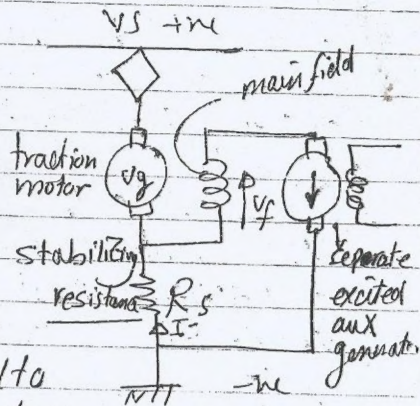 VS +ve
main field
traction
motor
Vg
Vf
stabilizing
resistance Rs
I
separate
excited
aux
generator
-ve